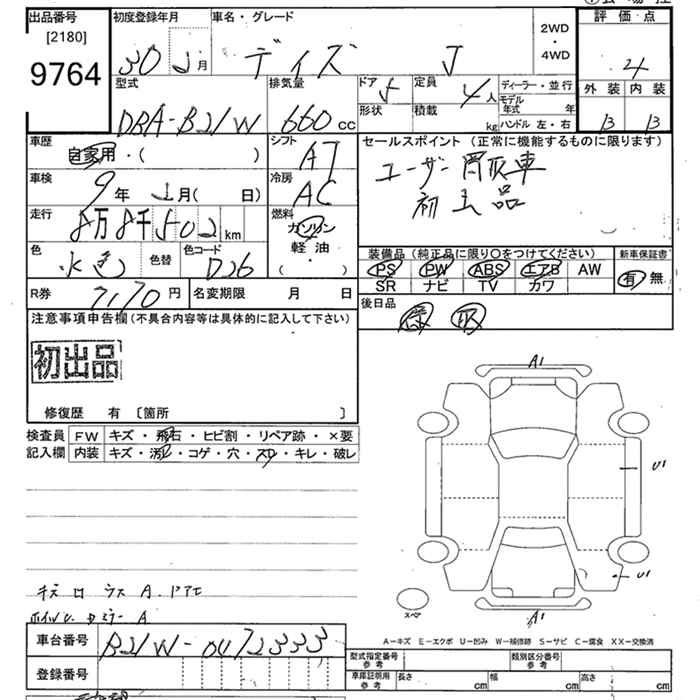 出品番号 初度登録年月 車名・グレード 評価点
[2180]
9764
30 年 月 デイズ J 2WD・4WD 4
型式 排気量 ドア 定員 ディーラー・並行 外装 内装
DBA-B21W 660 CC 5 4人 モデル年式 年 B B
形状 積載 kg ハンドル 左・右
車歴 シフト セールスポイント (正常に機能するものに限ります)
自家用・( ) AT ユーザー買取車
車検 冷房 初出品
9年 月( 日) AC
走行 燃料
8万8千502km ガソリン
色 色替 色コード 軽油 装備品 (純正品に限り○をつけてください) 新車保証書
水色 D26 ( ・ ) PS PW ABS エアB AW 有 無
SR ナビ TV カワ
R券 7170円 名変期限 月 日 後日品
注意事項申告欄(不具合内容等は具体的に記入して下さい) 保 取
初出品
A1
修復歴 有 〔箇所 〕
検査員 FW キズ・飛石・ヒビ割・リペア跡・×要
記入欄 内装 キズ・汚レ・コゲ・穴・スリ・キレ・破レ
U1
U1
キズ
スペア
A1
A-キズ E-エクボ U-凹み W-補修跡 S-サビ C-腐食 XX-交換済
車台番号 B21W-0472333
型式指定番号 参考 類別区分番号 参考
登録番号 車庫証明用 参考 長さ cm 幅 cm 高さ cm